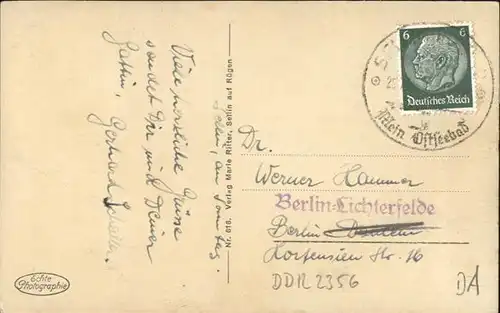 Sellin, am Sonntag.
Viele herzliche Grüsse
sendet Dir und Deiner
Gattin, Gerhard
Echte
Photographie
Nr. 616. Verlag Marie Ritter, Sellin auf Rügen
6 6
Deutsches Reich
Mein Ostseebad
Dr.
Werner Hammer
Berlin-Lichterfelde
Berlin
Hortensien Str. 16
DDR 2356
DA